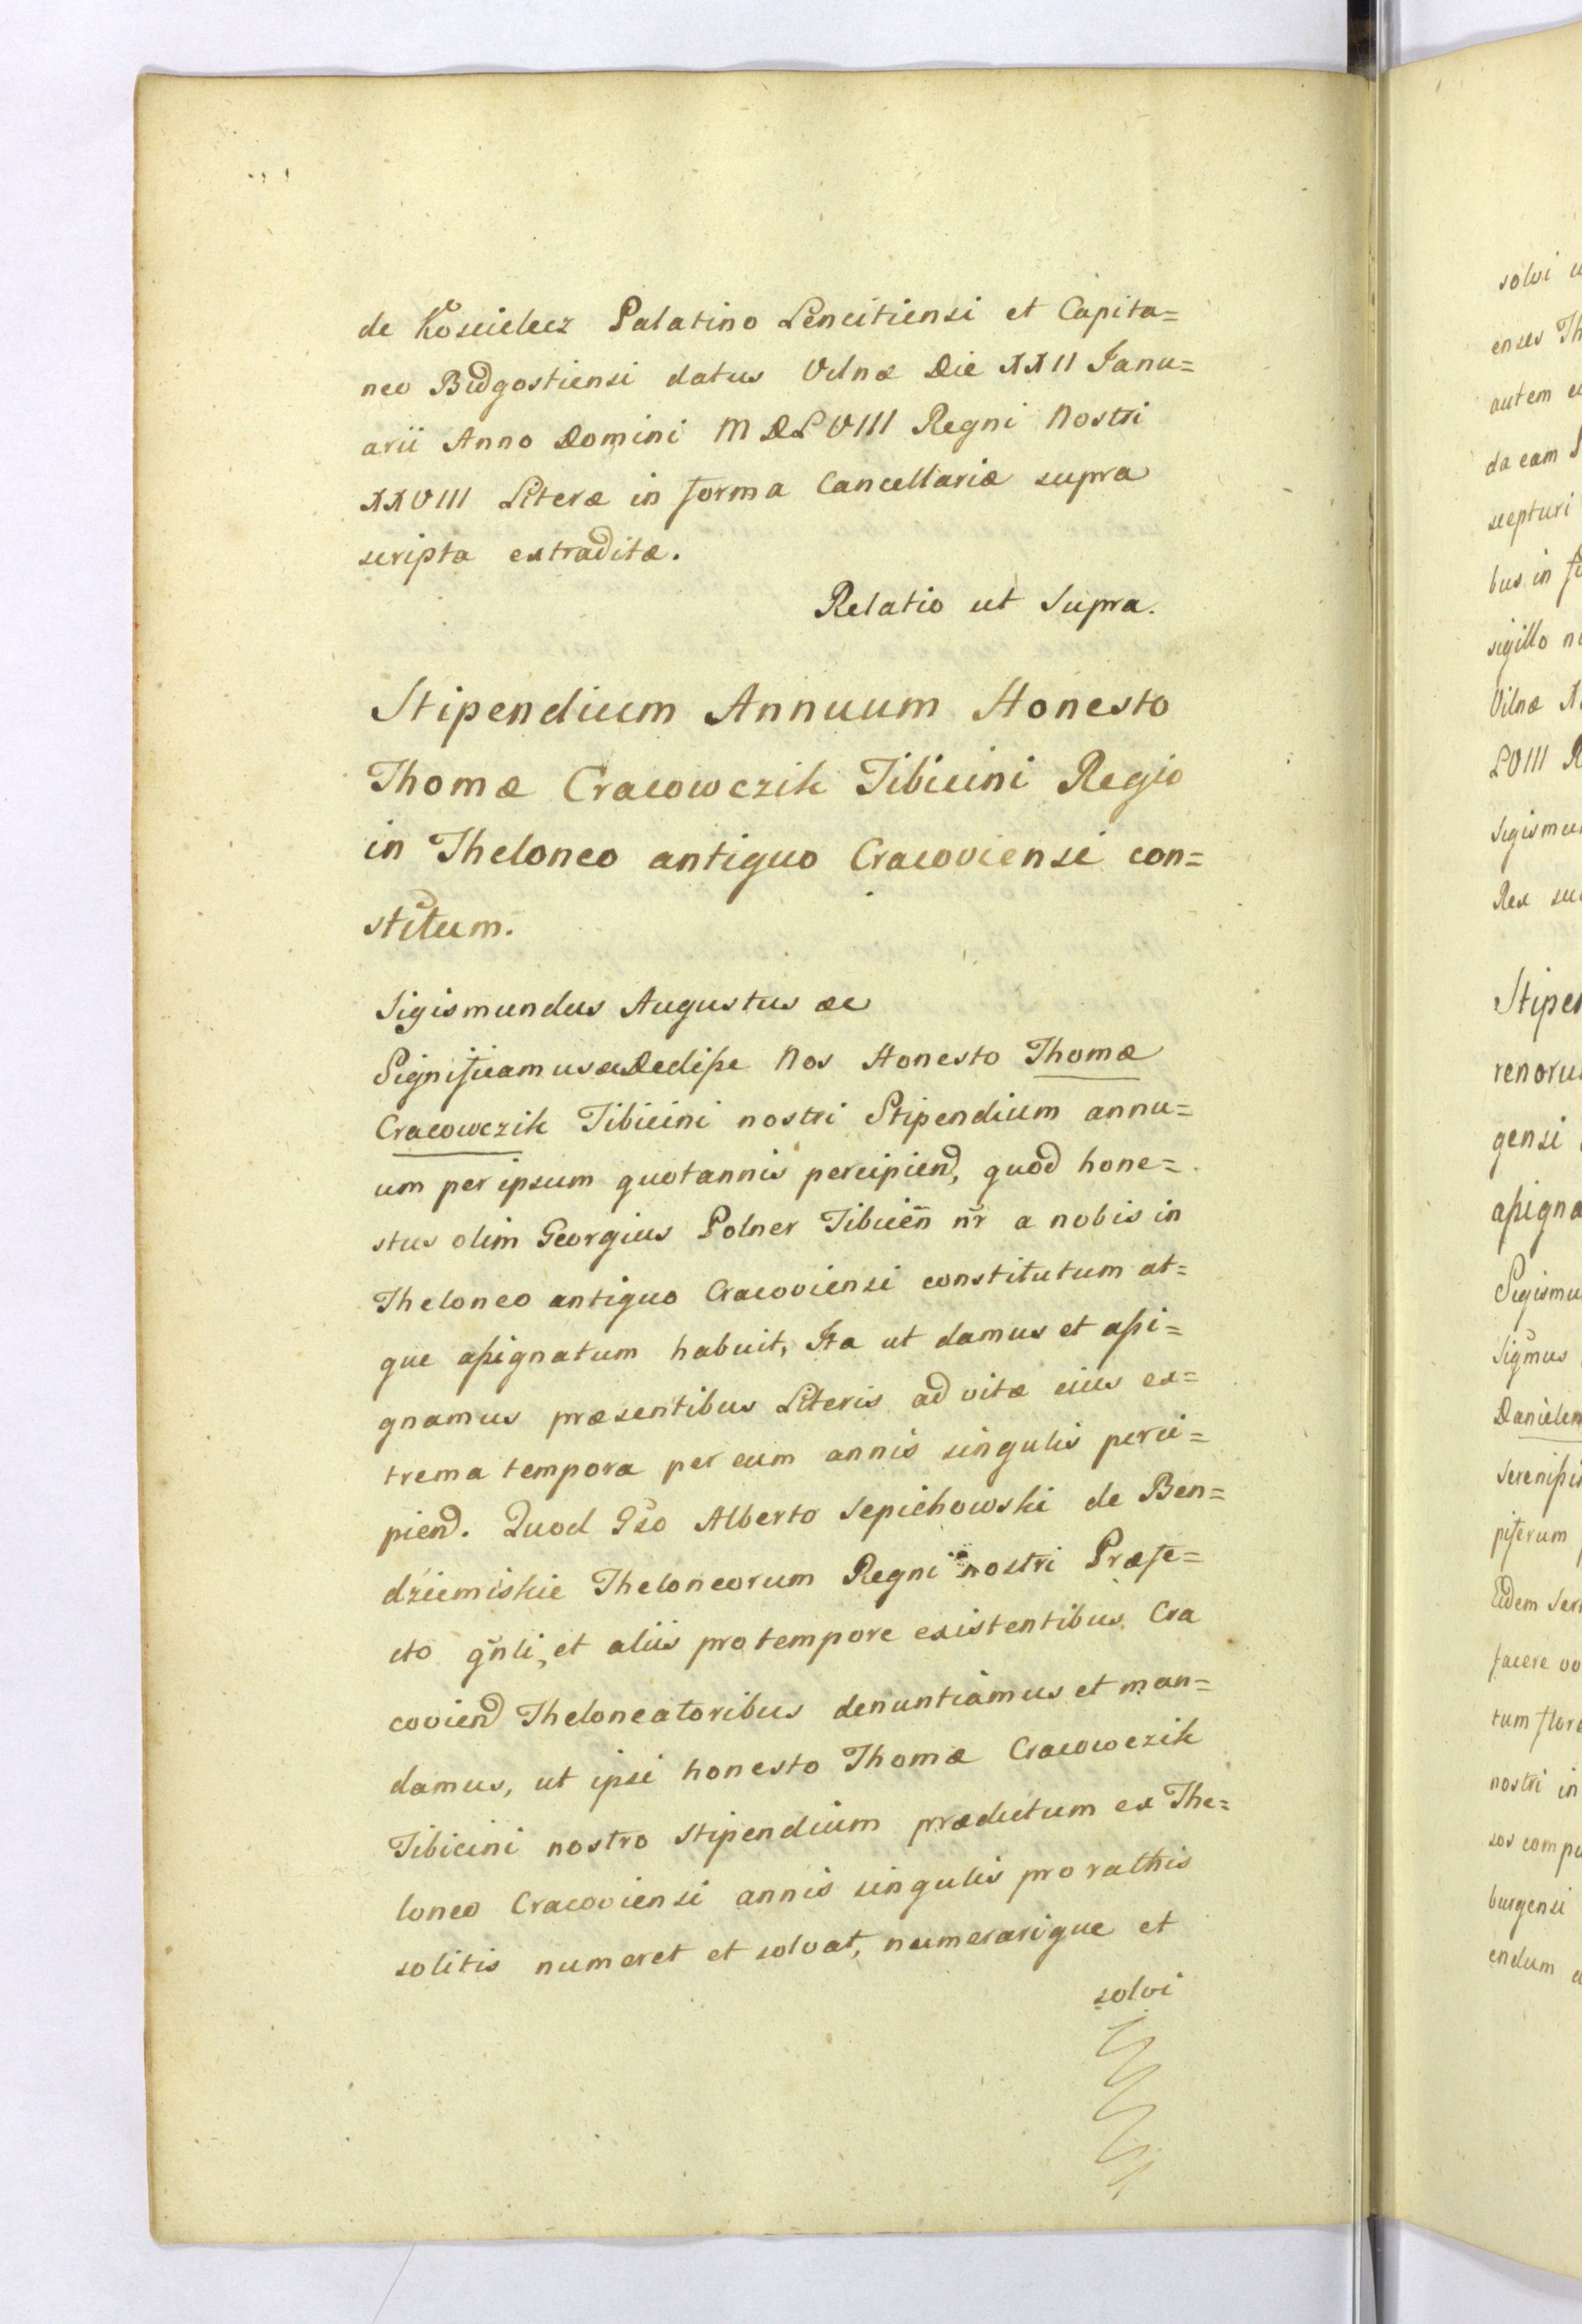 de Kościelecz Palatino Lencitiensi et Capita=
neo Bidgostiensi datus Vilnæ Die XXII Janu=
arii Anno Domini MDLVIII Regni Nostri
XXVIII Literæ in forma Cancellariæ supra
scripta extraditæ.
Relatio ut Supra.
Stipendium Annuum Honesto
Thomæ Cracowczik Tibicini Regio
in Theloneo antiquo Cracoviensi con=
stitum.
Sigismundus Augustus &c
Significamus &c Dedisse Nos Honesto Thomæ
Cracowczik Tibicini nostri Stipendium annu=
um per ipsum quotannis percipiend, quod hone=
stus olim Georgius Polner Tibicen̄ nr̄ a nobis in
Theloneo antiquo Cracoviensi constitutum at=
que assignatum habuit, Ita ut damus et assi=
gnamus præsentibus Literis ad vitæ eius ex=
trema tempora per eum annis singulis perci=
piend. Quod Gso Alberto Sepichowski de Ben=
dziemiskie Theloneorum Regni nostri Præfe=
cto gn̄li, et aliis pro tempore existentibus Cra
coviend Theloneatoribus denuntiamus et man=
damus, ut ipsi honesto Thomæ Cracowczik
Tibicini nostro stipendium prædictum ex The=
loneo Cracoviensi annis singulis pro rathis
solitis numeret et solvat, numerarique et
solvi
solvi
enses Th
autem
da eam
scepturi
bus in
sigillo
Vilnæ
LVIII
Sigismu
Rex
Stipe
renoru
gensi
assigna
Sigismu
Sigmus
Danielem
Serenissi
piferum
Eidem Ser
facere vo
tum flore
nostri in
sos
burgensi
endum